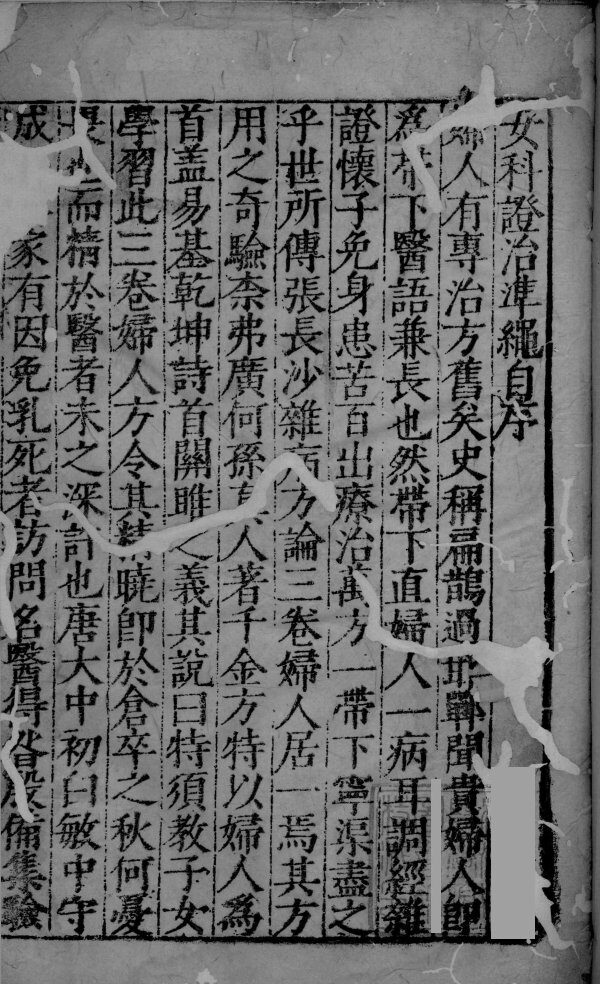 女科證治準繩自序
婦人有專治方舊矣史稱扁鵲過邯鄲聞貴婦人即
為帶下醫語兼長也然帶下直婦人一病耳調經雜
證懷子免身患苦百出療治萬方一帶下寧渠盡之
乎世所傳張長沙雜病方論三卷婦人居一焉其方
用之奇驗柰弗廣何孫真人著千金方特以婦人為
首盖易基乾坤詩首關雎之義其說曰特須教子女
學習此三卷婦人方令其精曉即於倉卒之秋何憂
而精於醫者未之深討也唐大中初白敏中守
成家有因免乳死者訪問名醫得昝殷備集驗